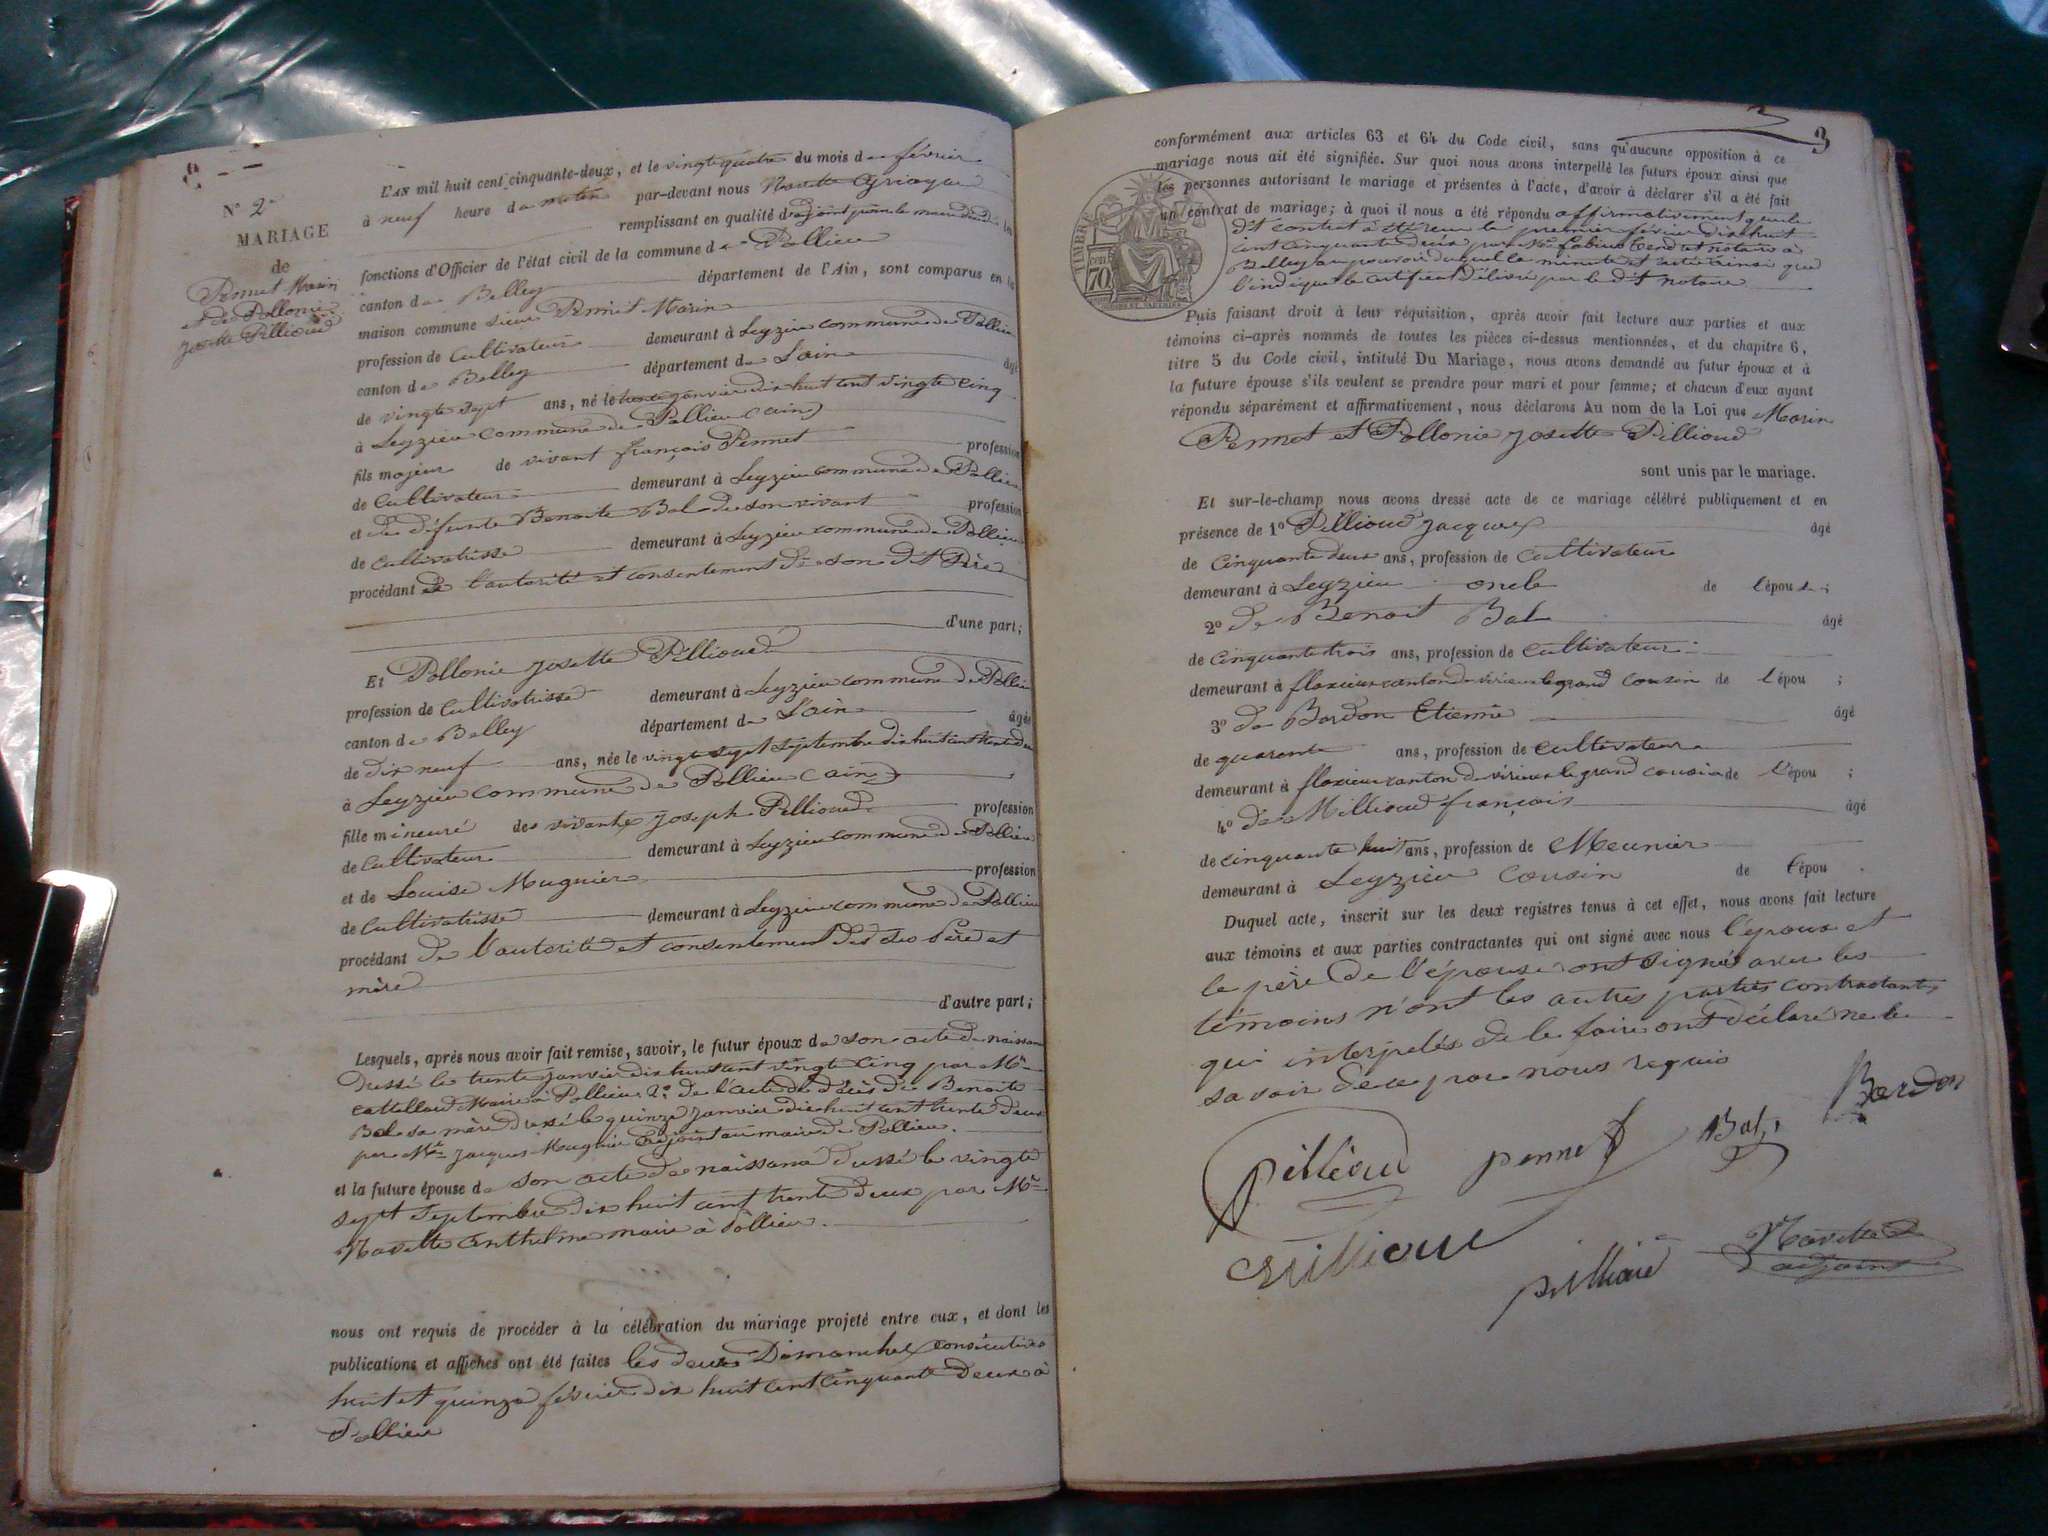 N° 2
MARIAGE
de
Pennet Marin
et de Pollonie
Josette Pillioud
L'AN mil huit cent cinquante-deux, et le vingt quatre du mois de février
à neuf heure du matin par-devant nous Navette Cyriaque
remplissant en qualité d'adjoint pour le maire les
fonctions d'Officier de l'état civil de la commune de Pollieu
canton de Belley département de l'Ain, sont comparus en la
maison commune sieur Pennet Marin
profession de Cultivateur demeurant à Leyzieu commune de Pollieu
canton de Belley département de L'ain âgé
de vingt sept ans, né le trente janvier dix huit cent vingt cinq
à Leyzieu commune de Pollieu (ain)
fils majeur de vivant françois Pennet profession
de Cultivateur demeurant à Leyzieu commune de Pollieu
et de défunte Benoite Bal de son vivant profession
de Cultivatrisse demeurant à Leyzieu commune de Pollieu
procédant de l'autorité et consentement de son dit Père
d'une part;
Et Pollonie Josette Pillioud
profession de Cultivatrisse demeurant à Leyzieu commune de Pollieu
canton de Belley département de L'ain âgée
de dix neuf ans, née le vingt sept septembre dix huit cent trente deux
à Leyzieu commune de Pollieu (ain)
fille mineure des vivants Joseph Pillioud profession
de Cultivateur demeurant à Leyzieu commune de Pollieu
et de Louise Mugnier profession
de Cultivatrisse demeurant à Leyzieu commune de Pollieu
procédant de l'autorité et consentement des ses Père et
mère
d'autre part;
Lesquels, après nous avoir fait remise, savoir, le futur époux de son acte de naissance
dressé le trente janvier dix huit cent vingt cinq par Mr
Cattelland Maire à Pollieu 2° de l'acte de décès de Benoite
Bal sa mère dressé le quinze janvier dix huit cent trente deux
par Mr Jacques Mugnier adjoint au maire de Pollieu.
et la future épouse de son acte de naissance dressé le vingt
sept septembre dix huit cent trente deux par Mr
Navette anthelme maire à Pollieu.
nous ont requis de procéder à la célébration du mariage projeté entre eux, et dont les
publications et affiches ont été faites les deux Dimanches consécutives
huit et quinze février dix huit cent cinquante deux à
Pollieu
3
conformément aux articles 63 et 64 du Code civil, sans qu'aucune opposition à ce
mariage nous ait été signifiée. Sur quoi nous avons interpellé les futurs époux ainsi que
les personnes autorisant le mariage et présentes à l'acte, d'avoir à déclarer s'il a été fait
un contrat de mariage; à quoi il nous a été répondu affirmativement que le
dit contrat a été reçu le premier février dix huit
cent cinquante deux par Me Fabius notaire à
Belley au pouvoir duquel la minute est restée ainsi que
l'indique le certificat délivré par le dit notaire
TIMBRE
70
Puis faisant droit à leur réquisition, après avoir fait lecture aux parties et aux
témoins ci-après nommés de toutes les pièces ci-dessus mentionnées, et du chapitre 6,
titre 5 du Code civil, intitulé Du Mariage, nous avons demandé au futur époux et à
la future épouse s'ils veulent se prendre pour mari et pour femme; et chacun d'eux ayant
répondu séparément et affirmativement, nous déclarons Au nom de la Loi que Marin
Pennet et Pollonie Josette Pillioud
sont unis par le mariage.
Et sur-le-champ nous avons dressé acte de ce mariage célébré publiquement et en
présence de 1° Pillioud Jacques âgé
de Cinquante deux ans, profession de Cultivateur
demeurant à Leyzieu oncle de l'épouse;
2° de Benoit Bal âgé
de cinquante trois ans, profession de cultivateur
demeurant à flaxieu canton de virieu le grand cousin de l'épou ;
3° de Bardon Etienne âgé
de quarente ans, profession de cultivateur
demeurant à flaxieu canton de virieu le grand cousin de l'épou ;
4° de Millioud françois âgé
de cinquante huit ans, profession de Meunier
demeurant à Leyzieu Cousin de l'épou .
Duquel acte, inscrit sur les deux registres tenus à cet effet, nous avons fait lecture
aux témoins et aux parties contractantes qui ont signé avec nous l'époux et
le père de l'épouse ont signés avec les
témoins n'ont les autres parties contractantes
qui interpelés de le faire ont déclaré ne le
savoir de ce par nous requis
Pillioud Pennet Bal Bardon
Millioud
pillioud
Navette
adjoint